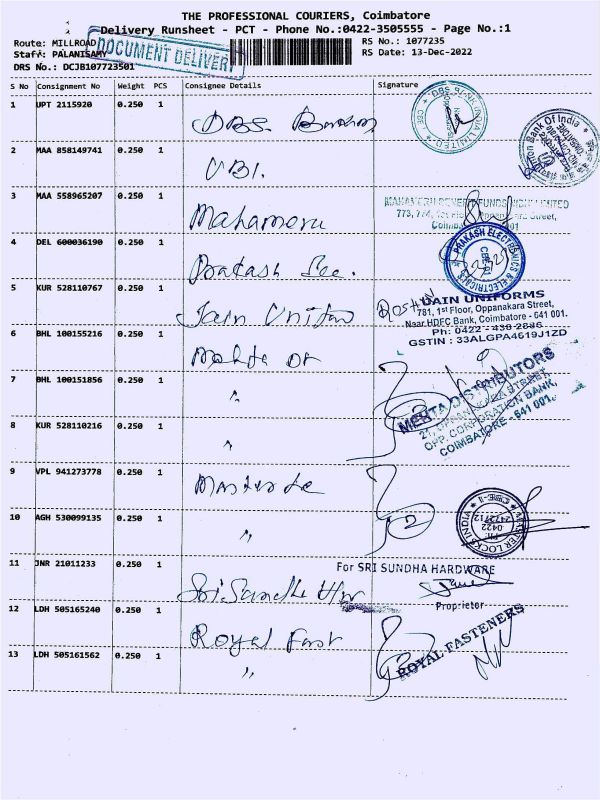 THE PROFESSIONAL COURIERS, Coimbatore
Delivery Runsheet - PCT - Phone No.:0422-3505555 - Page No.:1
Route: MILLROAD
RS No.: 1077235
Staff: PALANISAMY
RS Date: 13-Dec-2022
DOCUMENT DELIVERY
DRS No.: DCJB107723501
S No Consignment No Weight PCS Consignee Details Signature
1 UPT 2115920 0.250 1
DBS
DBS BANK INDIA LIMITED
CBE
2 MAA 858149741 0.250 1
UBI.
Union Bank Of India
3 MAA 558965207 0.250 1
Mahameru
773, 774, 1st Street,
4 DEL 600036190 0.250 1
Prakash Ele.
PRAKASH ELECTRONICS & ELECTRICALS
5 KUR 528110767 0.250 1
Jain Uniform
ROSHAN
JAIN UNIFORMS
781, 1st Floor, Oppanakara Street,
Naar.HDFC Bank, Coimbatore - 641 001.
Ph: 0422 - 438 2886
GSTIN : 33ALGPA4619J1ZD
6 BHL 100155216 0.250 1
Mehta Dt
7 BHL 100151856 0.250 1
"
MEHTA DISTRIBUTORS
OPP. CORPORATION BANK,
COIMBATORE - 641 001.
8 KUR 528110216 0.250 1
"
9 VPL 941273778 0.250 1
10 AGH 530099135 0.250 1
"
MASTER LOCKS INDIA
PH:
0422
2472712
11 JNR 21011233 0.250 1
Sri Sundha Hw
For SRI SUNDHA HARDWARE
Proprietor
12 LDH 505165240 0.250 1
Royal Fast
ROYAL FASTENERS
13 LDH 505161562 0.250 1
"